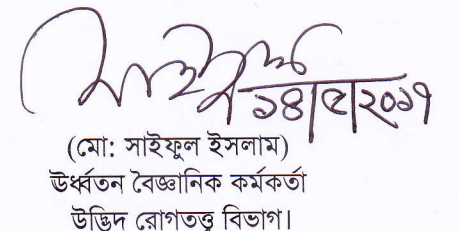 সাইফুল
১৪|৫|২০১৭
(মো: সাইফুল ইসলাম)
ঊর্ধ্বতন বৈজ্ঞানিক কর্মকর্তা
উদ্ভিদ রোগতত্ত্ব বিভাগ।